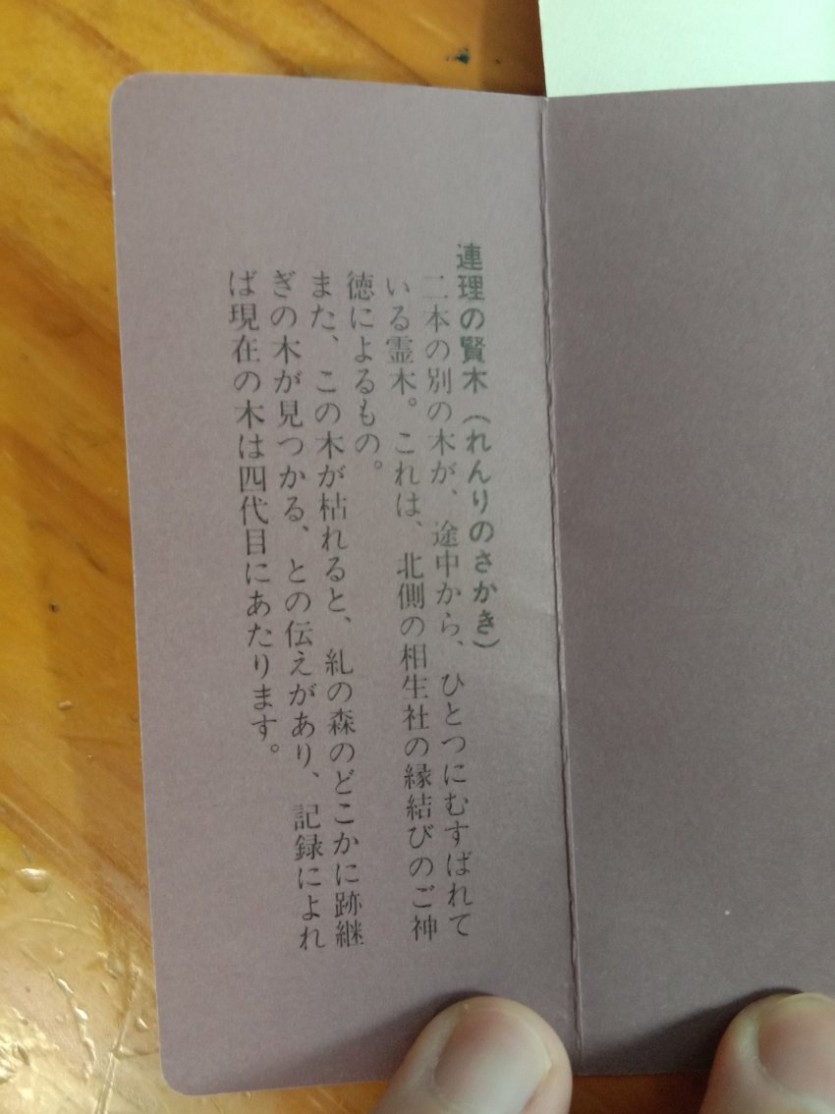 連理の賢木（れんりのさかき）
二本の別の木が、途中から、ひとつにむすばれて
いる霊木。これは、北側の相生社の縁結びのご神
徳によるもの。
また、この木が枯れると、糺の森のどこかに跡継
ぎの木が見つかる、との伝えがあり、記録によれ
ば現在の木は四代目にあたります。